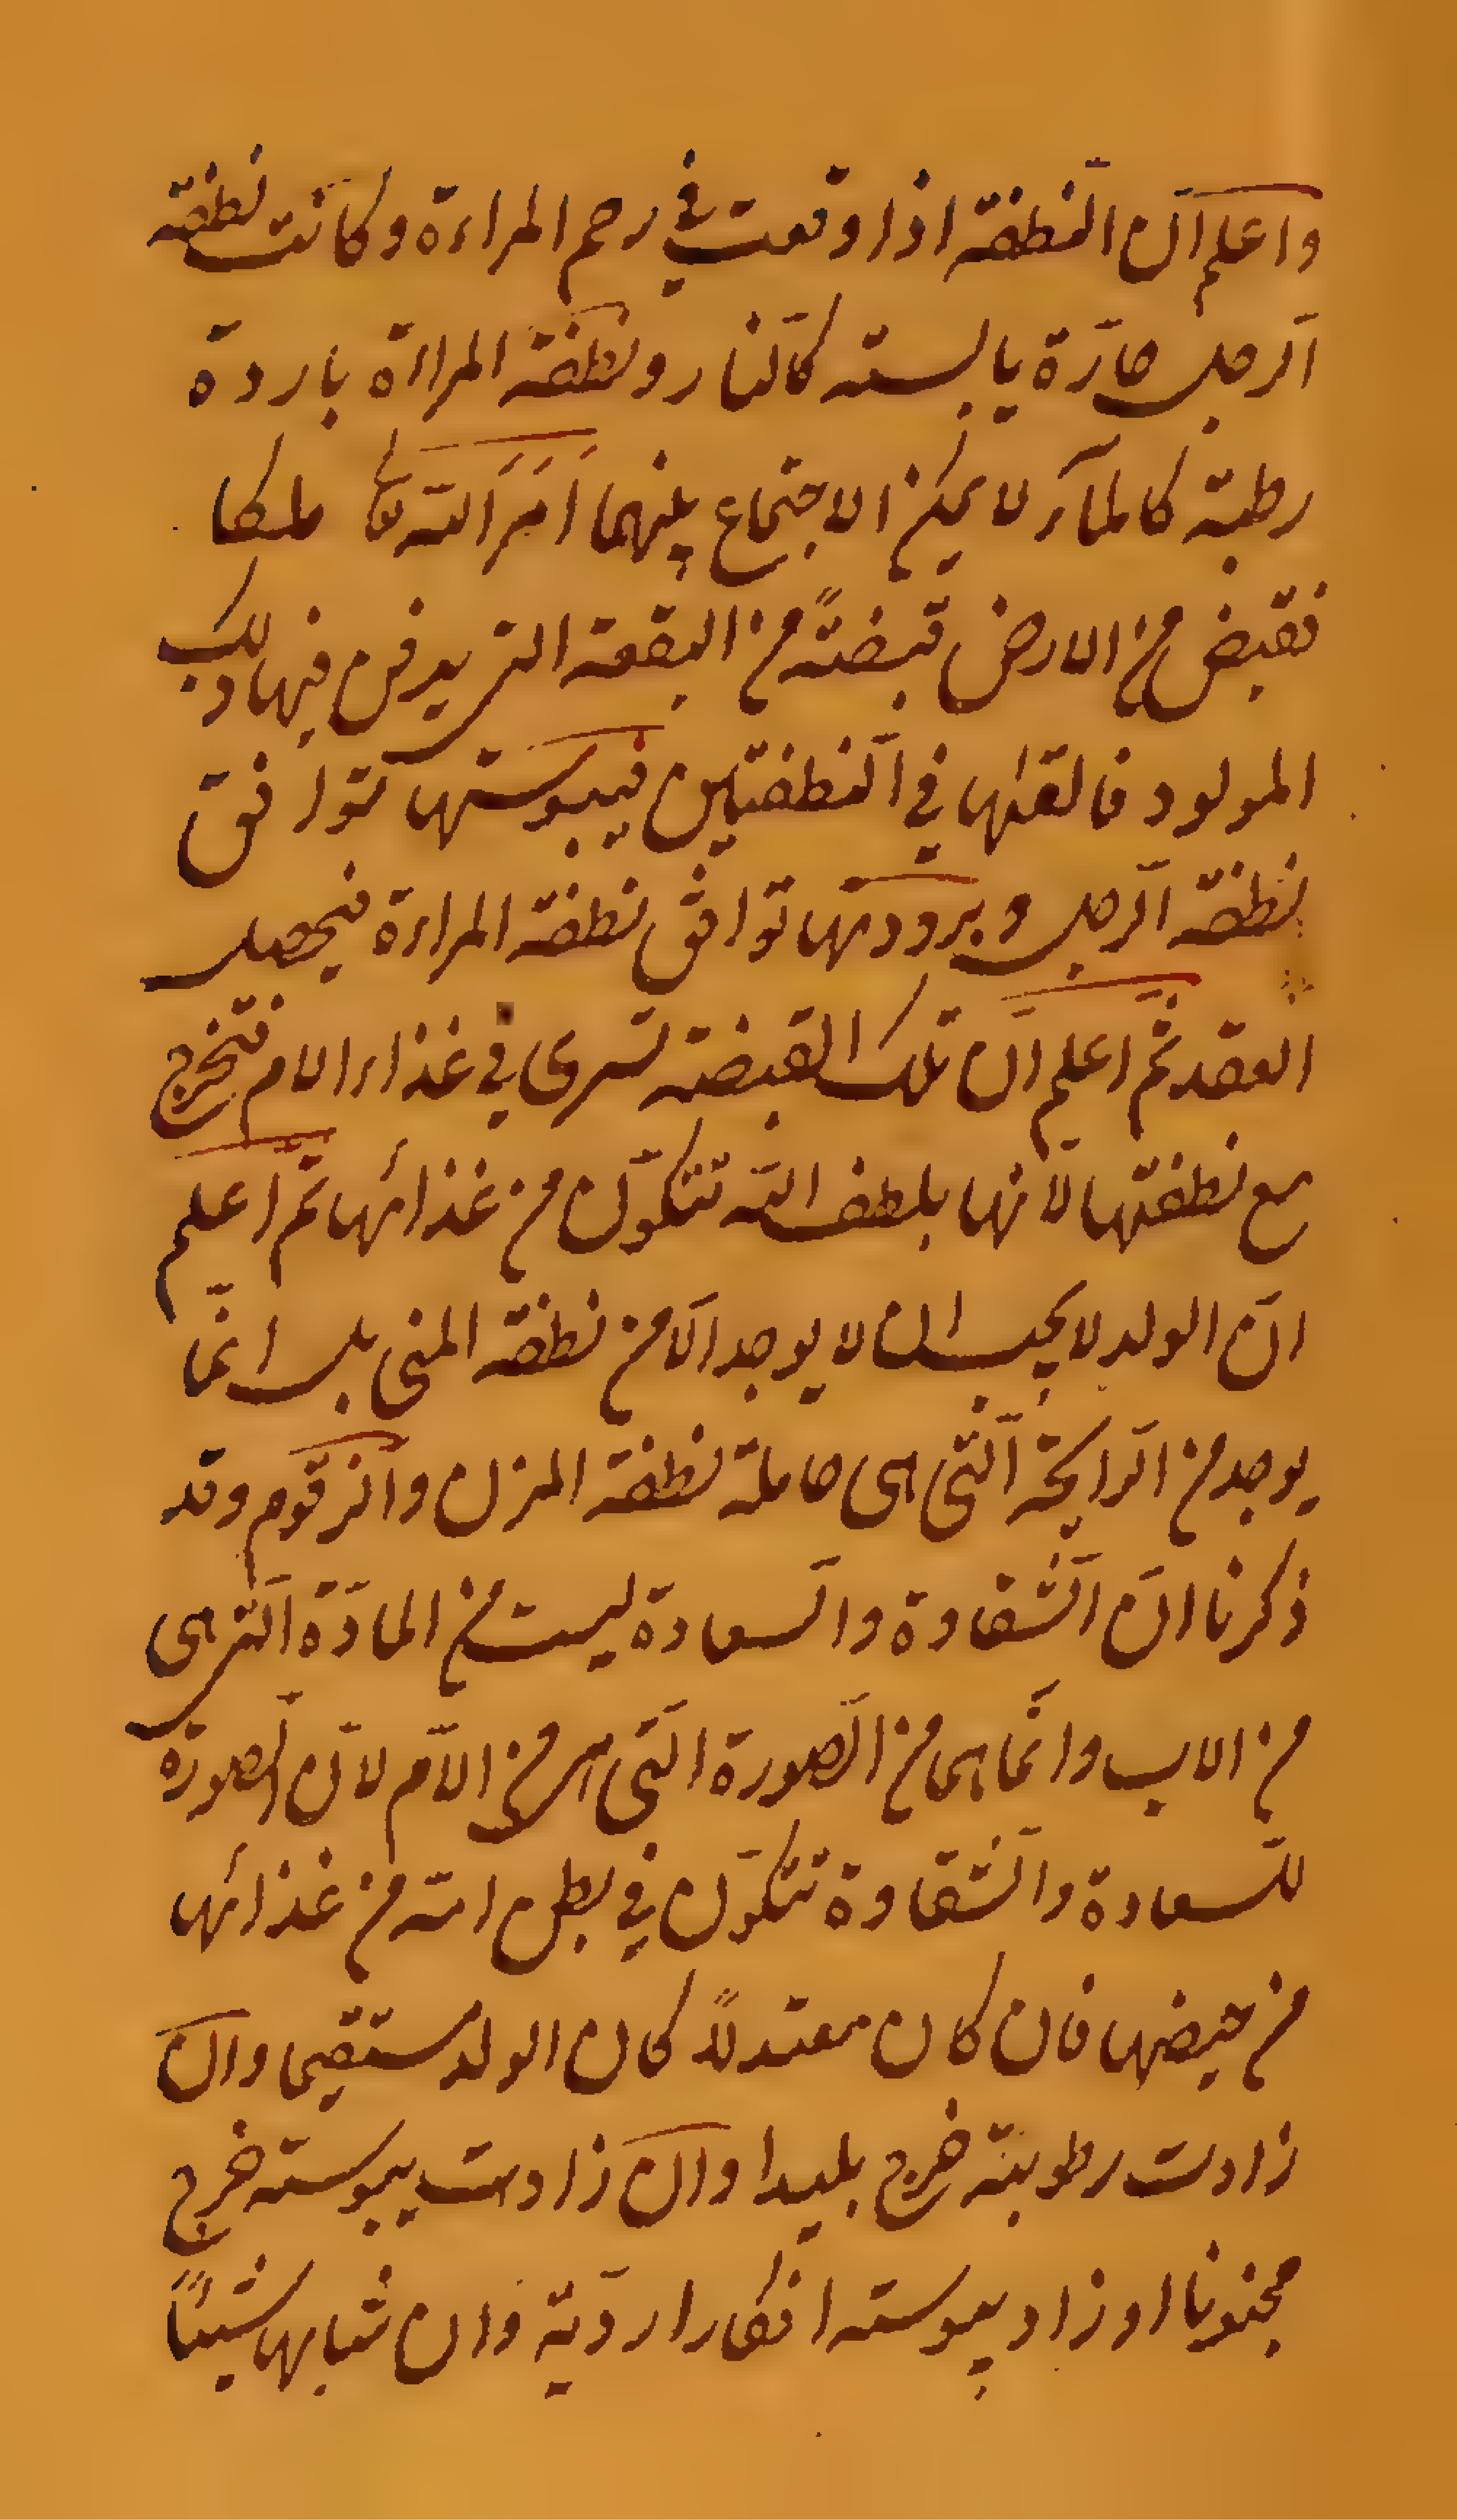 واعلم انّ النطفة اذا وقعت في رحم المراءة وكانت نطفة
الرّجل حارّة يابسة كالنّار ونطفة المراءة باردة
رطبة كالمآء لا يمكن الاجتماع بينهما اَمَرَ الله تعا ملكا
فقبض من الارض قبضةً من البقعة التى يدفن فيها ذلك
المولود فالقيها في النّطفتين فيبوستها توافق
نطفة الرّجل وبرودتها توافق نطفة المراءة فيحصل
العقد ثمّ اعلم انّ تلك القبضة تسرى في غذاء الام فتخرج
مع نطفتها لانّها بلطف الله تتكوّن من غذائها ثم اعلم
انّ الولد لا يجب ان لا يوجد الّا من نطفة المنى بل انّما
يوجد من الرّايحة الّتى هى حاملة نطفة المزن والزّقوم وقد
ذكرنا انّ الشّقاوة والسّعادة ليست من المادّة الّتى هى
من الاب وانّما هما من الصّورة الّتى هى من الامّ لانّ الصورة
للسّعادة والشّقاوة تتكوّن في بطن امّه من غذائها
من حيضها فان كان معتدلاً كان الولد مستقيما وان
زادت رطوبته خرج بليدا وان زادت يبوسته خرج
مجنونا او زاد يبوسته افكارا رديّة وان شابها شيئاً